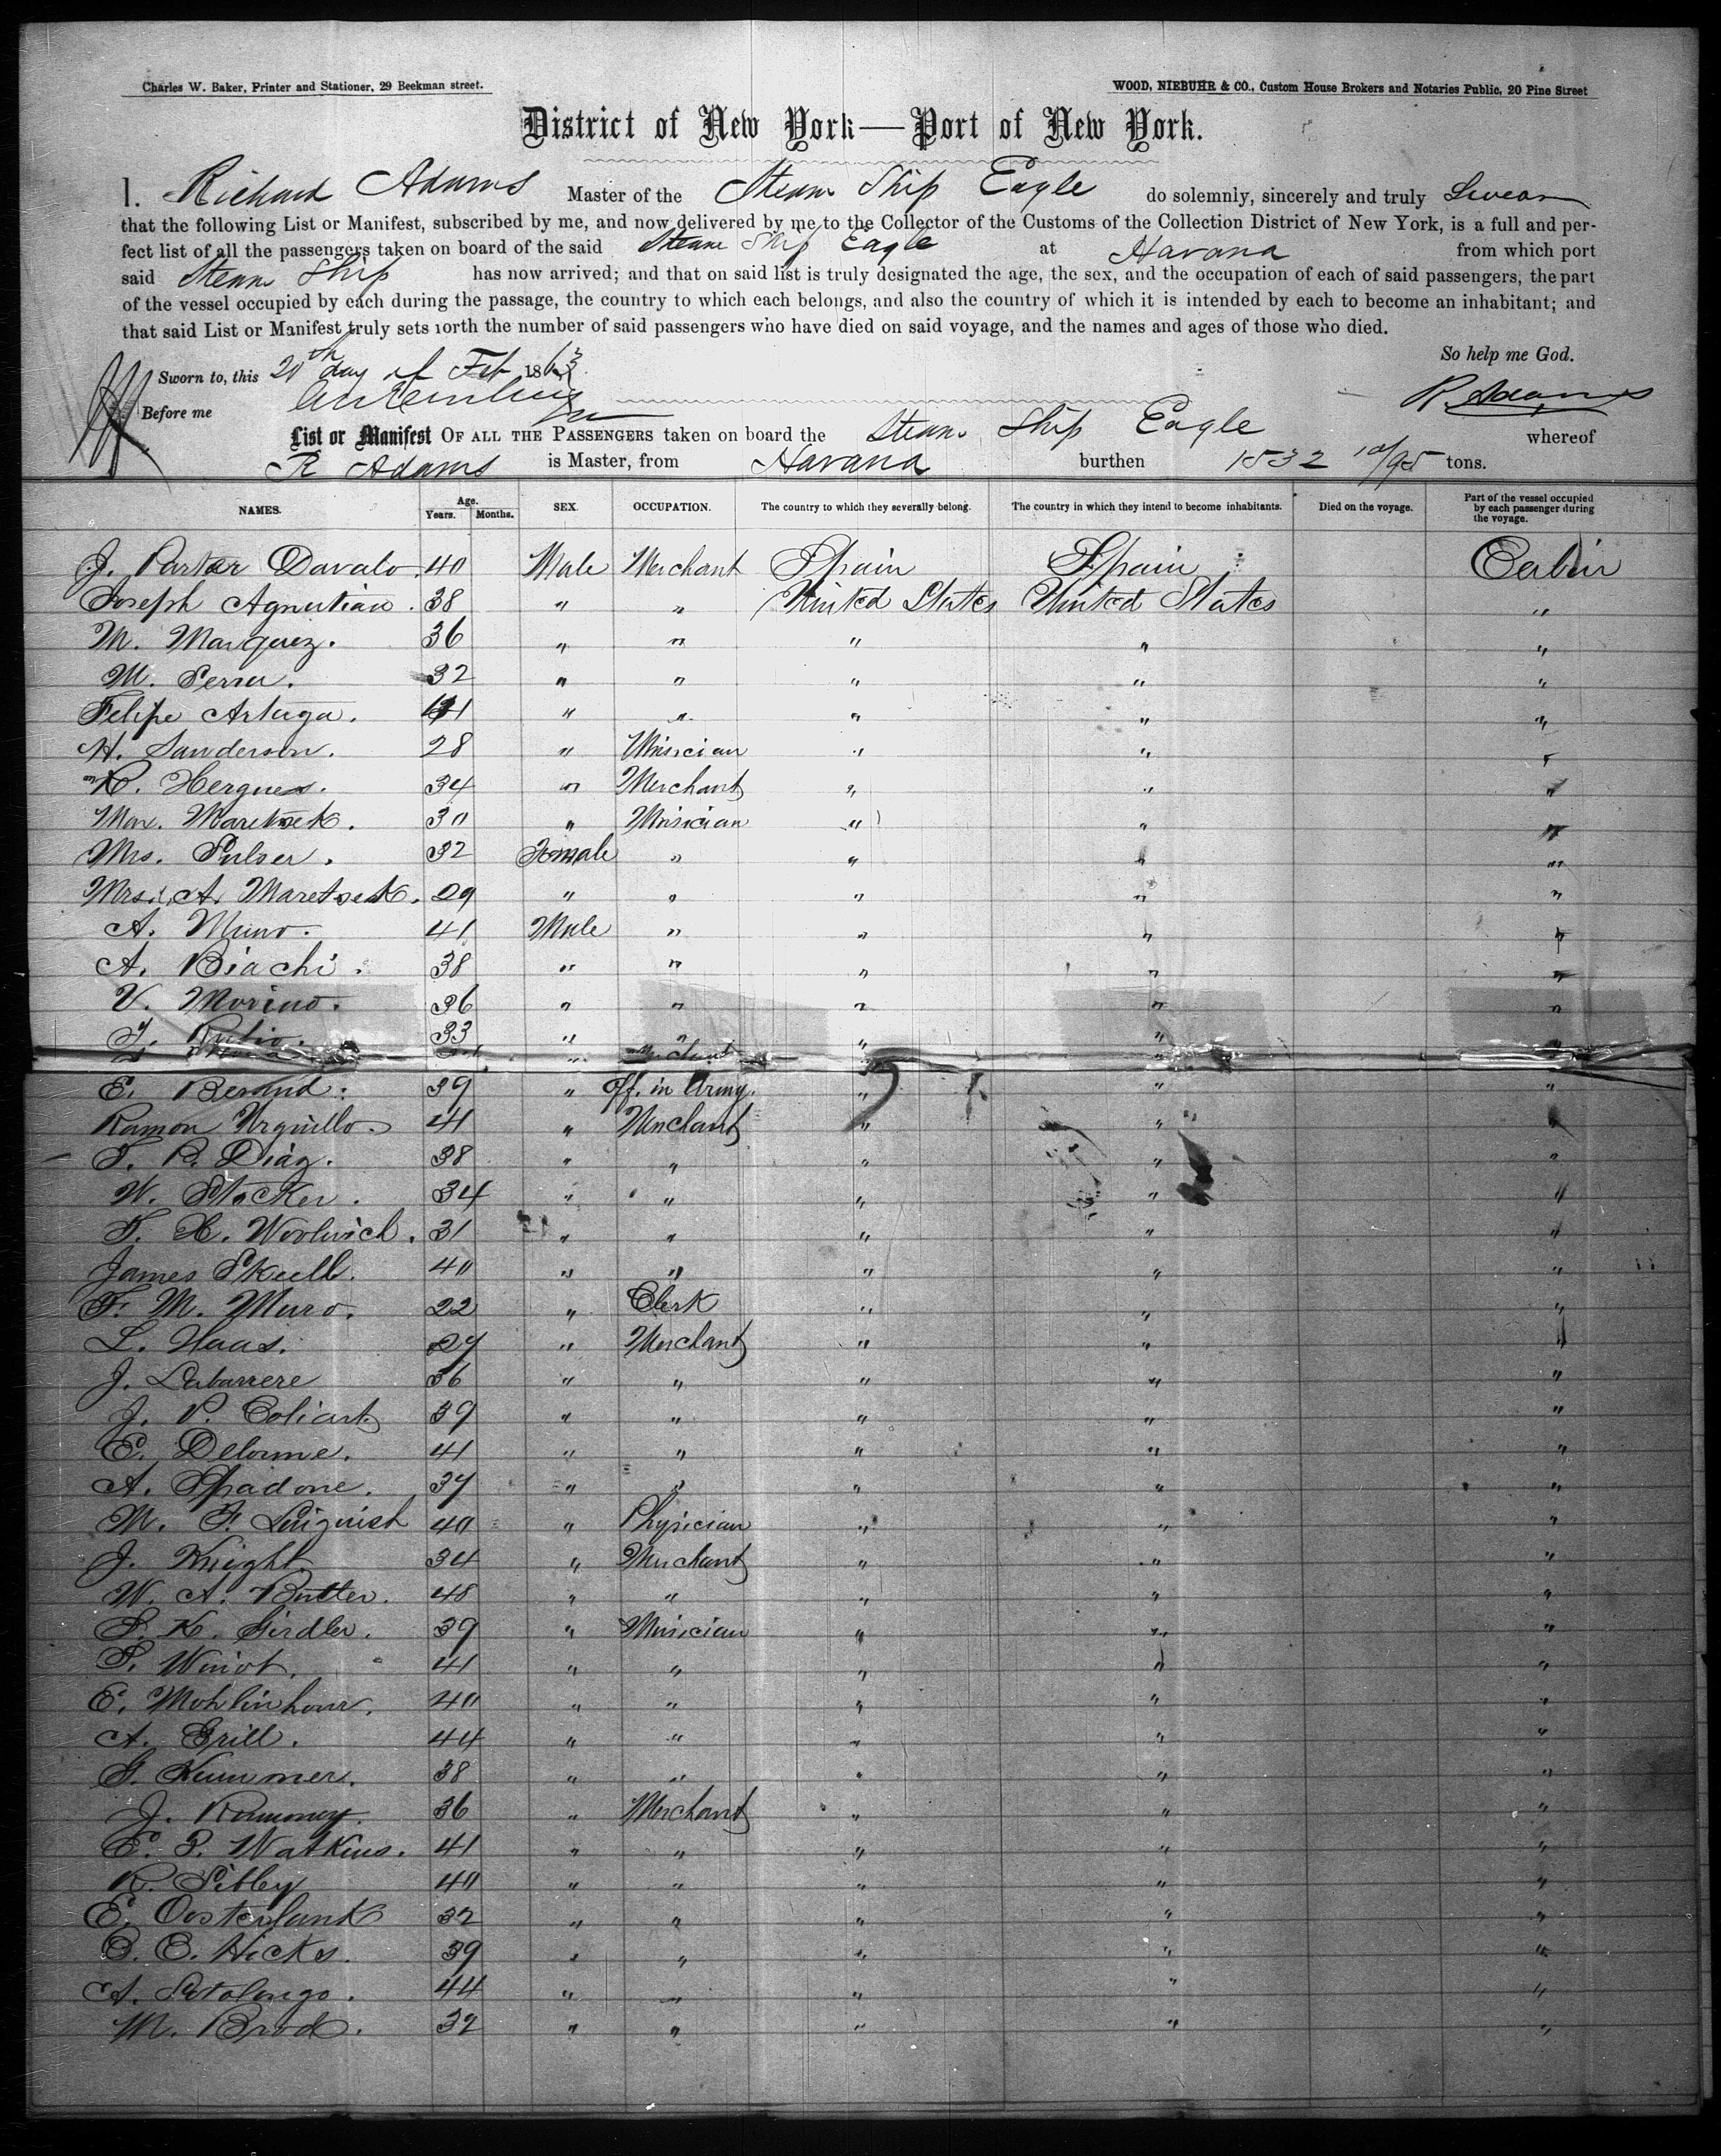 Charles W. Baker, Printer and Stationer, 29 Beekman street.
WOOD, NIEBUHR & CO., Custom House Brokers and Notaries Public, 20 Pine Street
District of New York—Port of New York.
I. Richard Adams Master of the Steam Ship Eagle do solemnly, sincerely and truly Swear
that the following List or Manifest, subscribed by me, and now delivered by me to the Collector of the Customs of the Collection District of New York, is a full and per-
fect list of all the passengers taken on board of the said Steam Ship Eagle at Havana from which port
said Steam Ship has now arrived; and that on said list is truly designated the age, the sex, and the occupation of each of said passengers, the part
of the vessel occupied by each during the passage, the country to which each belongs, and also the country of which it is intended by each to become an inhabitant; and
that said List or Manifest truly sets forth the number of said passengers who have died on said voyage, and the names and ages of those who died.
So help me God.
Sworn to, this 20th day of Feb 1863
R Adams
Before me
List or Manifest OF ALL THE PASSENGERS taken on board the Steam Ship Eagle whereof
R Adams is Master, from Havana burthen 1532 10/95 tons.
NAMES. Age. Years. Months. SEX. OCCUPATION. The country to which they severally belong. The country in which they intend to become inhabitants. Died on the voyage. Part of the vessel occupied by each passenger during the voyage.
J. Davalo 40 Male Merchant Spain Spain Cabin
Joseph 38 " " United States United States "
M. Marquez. 36 " " " " "
M. Serra. 32 " " " " "
Felipe Artuga. 41 " " " " "
H. Sanderson. 28 " Musician " " "
R. Hergues. 34 " Merchant " " "
Max. Maretzek. 30 " Musician " " "
Mrs. Sulzer. 32 Female " " " "
Mrs. A. Maretzek. 29 " " " " "
A. Muno. 41 Male " " " "
A. Biachi. 38 " " " " "
V. Morino. 36 " " " " "
Rubio. 33 " " " " "
" Merchant " "
E. 39 " Off. in Army. " " "
Ramon Urguillo. 41 " Merchant " " "
T. R. Diaz. 38 " " " " "
W. Stocker. 34 " " " " "
T. H. Woolwich. 31 " " " " "
James Skull. 40 " " " " "
F. M. Muro. 22 " Clerk " " "
L. Haas. 27 " Merchant " " "
J. Labarrere 36 " " " " "
J. P. Coliart. 39 " " " " "
E. Delorme. 41 " " " " "
A. Spadone. 37 " " " " "
M. F. 40 " Physician " " "
J. Knight 34 " Merchant " " "
W. A. Butter. 48 " " " " "
S. K. Girdler. 39 " Musician " " "
S. Winot. 41 " " " " "
E. Mohlinhour. 40 " " " " "
A. Grill. 44 " " " " "
G. Kummer. 38 " " " " "
J. 36 " Merchant " " "
E. P. Watkins. 41 " " " " "
R. Sibley 40 " " " " "
E. Oosterlank 32 " " " " "
C. C. Hicks. 39 " " " " "
A. Sotolongo. 44 " " " " "
M. Brod. 32 " " " " "